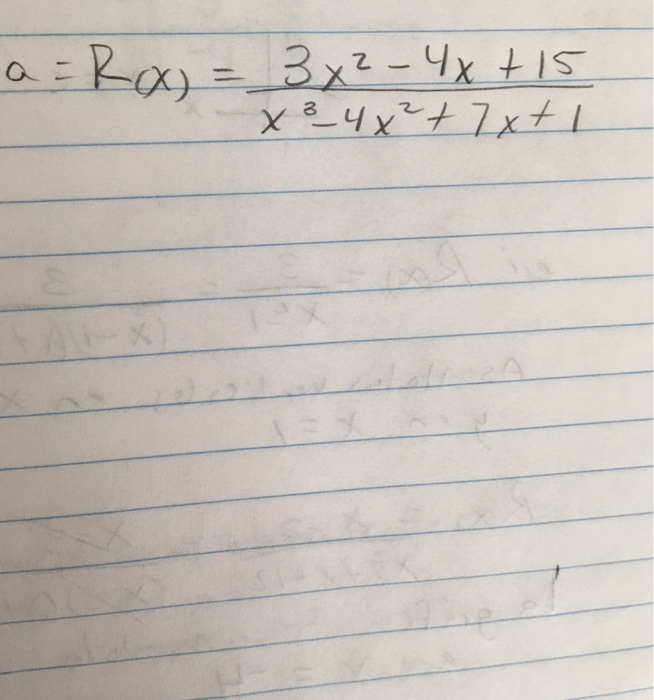 a = R(x) = 3x² - 4x + 15
x³ - 4x² + 7x + 1